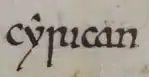 cẏrican